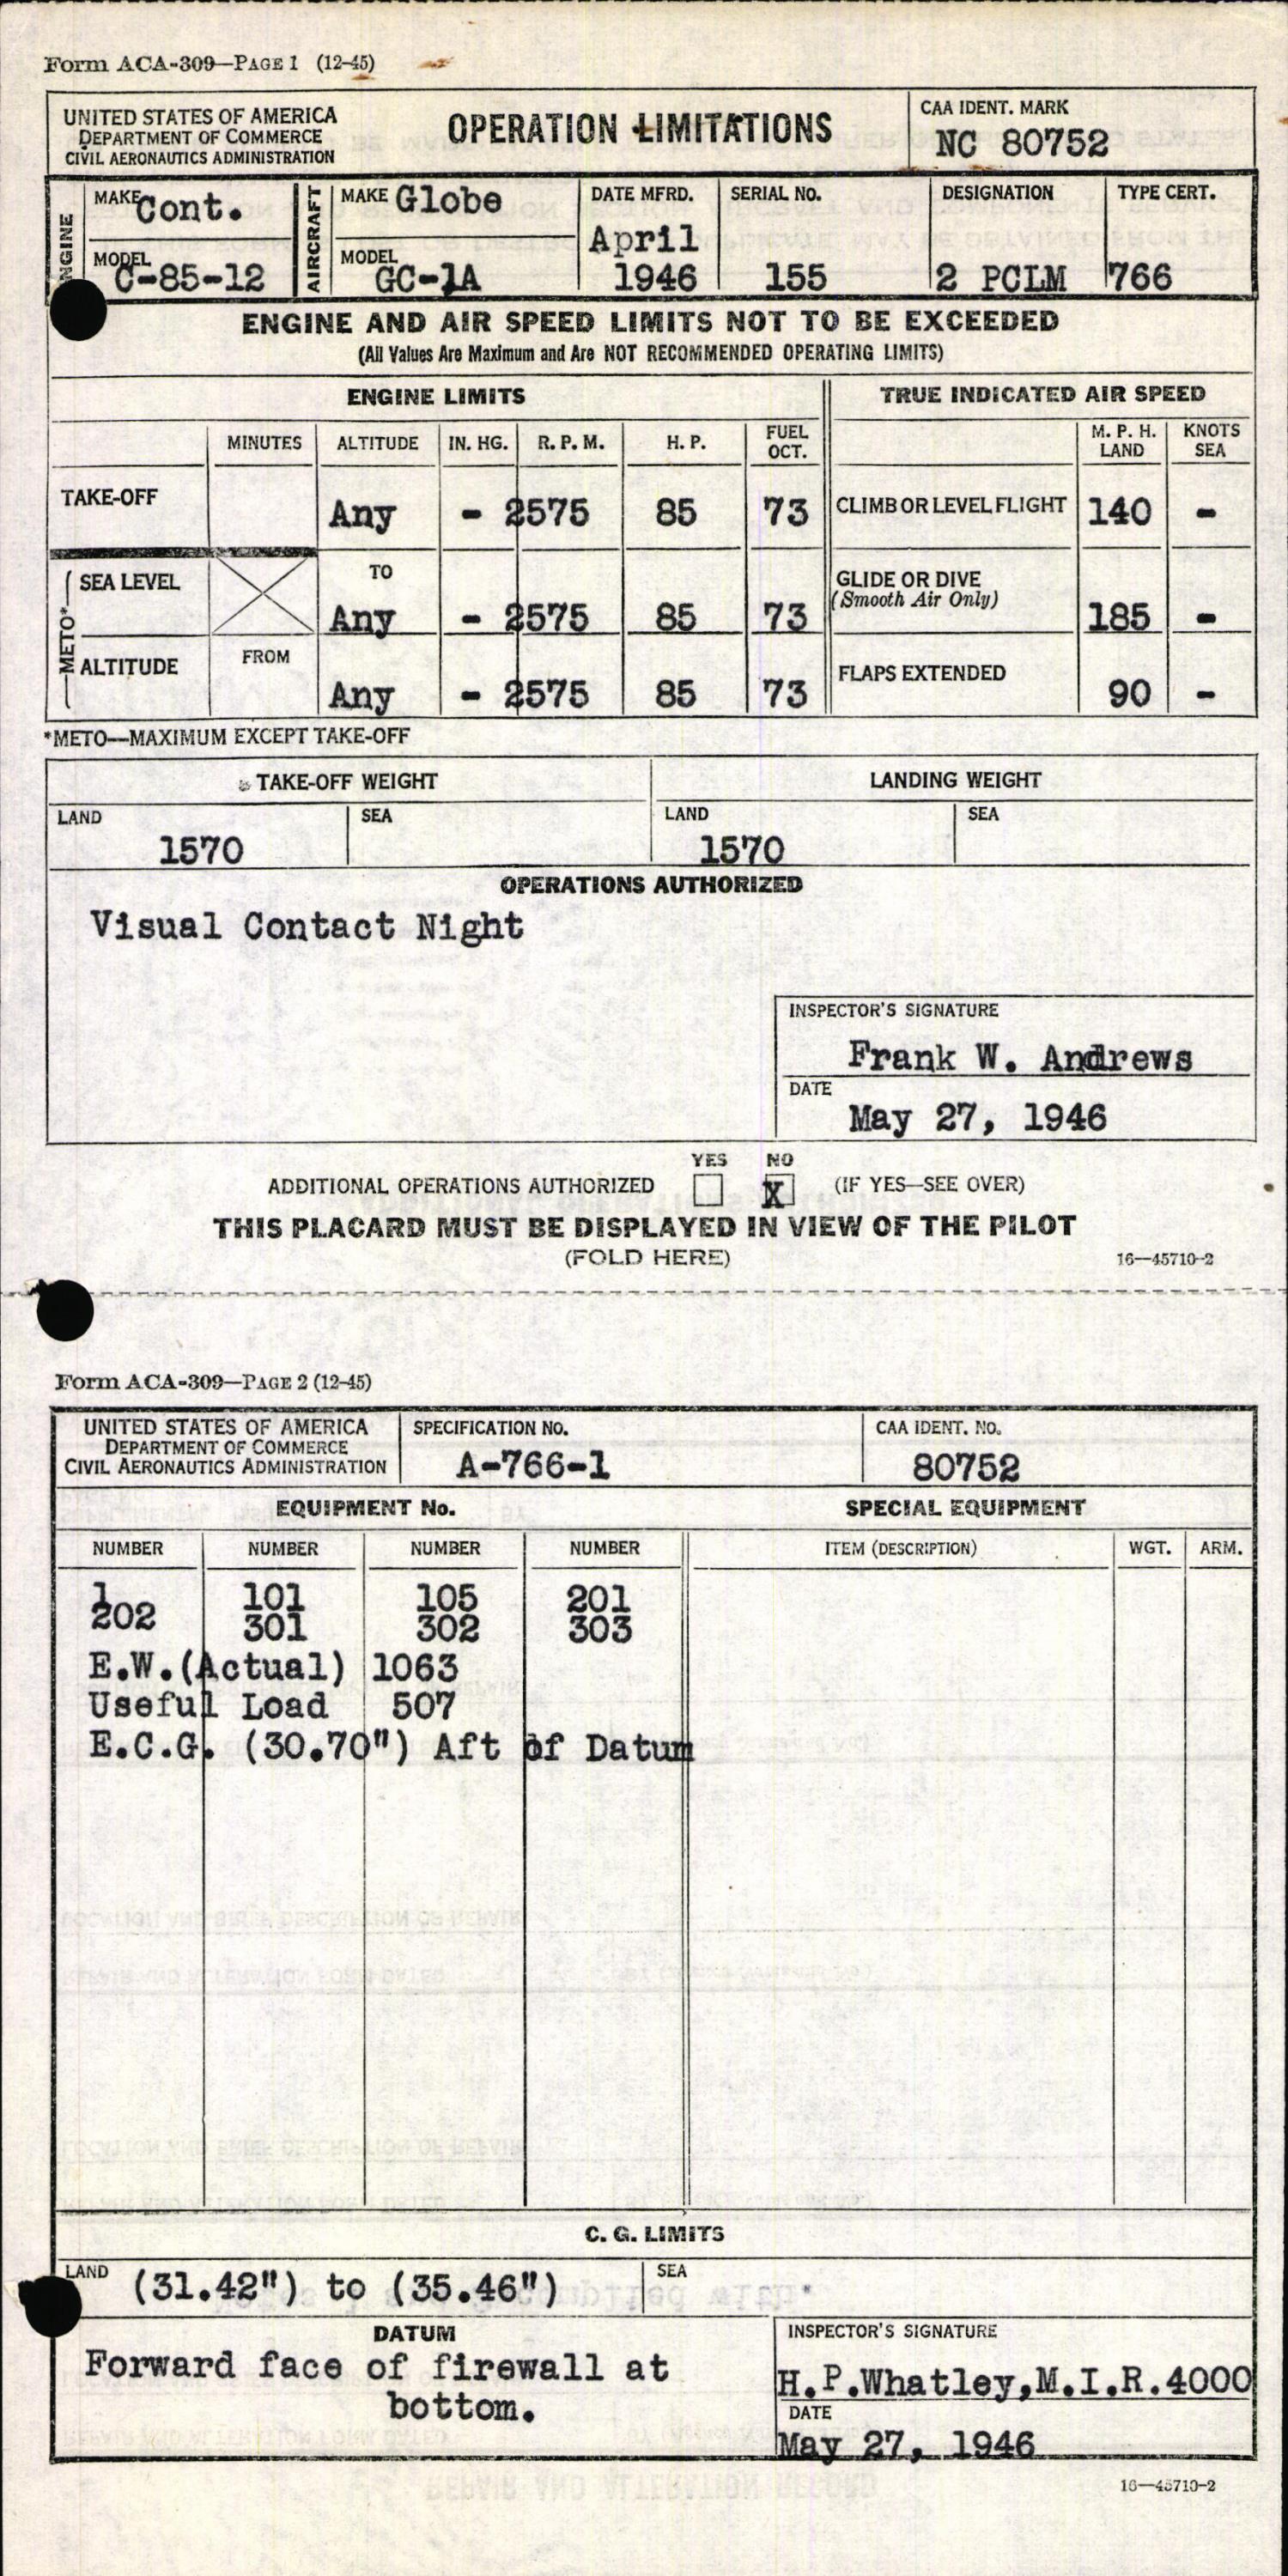 Form ACA-309—PAGE 1 (12-45)
UNITED STATES OF AMERICA
DEPARTMENT OF COMMERCE
CIVIL AERONAUTICS ADMINISTRATION
OPERATION LIMITATIONS
CAA IDENT. MARK
NC 80752
ENGINE
MAKE Cont.
MODEL C-85-12
AIRCRAFT
MAKE Globe
MODEL GC-1A
DATE MFRD.
April
1946
SERIAL NO.
155
DESIGNATION
2 PCLM
TYPE CERT.
766
ENGINE AND AIR SPEED LIMITS NOT TO BE EXCEEDED
(All Values Are Maximum and Are NOT RECOMMENDED OPERATING LIMITS)
ENGINE LIMITS TRUE INDICATED AIR SPEED
MINUTES ALTITUDE IN. HG. R. P. M. H. P. FUEL OCT. M. P. H. LAND KNOTS SEA
TAKE-OFF Any - 2575 85 73 CLIMB OR LEVEL FLIGHT 140 -
METO*
SEA LEVEL TO Any - 2575 85 73 GLIDE OR DIVE (Smooth Air Only) 185 -
ALTITUDE FROM Any - 2575 85 73 FLAPS EXTENDED 90 -
*METO—MAXIMUM EXCEPT TAKE-OFF
TAKE-OFF WEIGHT LANDING WEIGHT
LAND SEA LAND SEA
1570 1570
OPERATIONS AUTHORIZED
Visual Contact Night
INSPECTOR'S SIGNATURE
Frank W. Andrews
DATE
May 27, 1946
YES NO
ADDITIONAL OPERATIONS AUTHORIZED X (IF YES—SEE OVER)
THIS PLACARD MUST BE DISPLAYED IN VIEW OF THE PILOT
(FOLD HERE) 16—45710-2
Form ACA-309—PAGE 2 (12-45)
UNITED STATES OF AMERICA
DEPARTMENT OF COMMERCE
CIVIL AERONAUTICS ADMINISTRATION
SPECIFICATION NO.
A-766-1
CAA IDENT. NO.
80752
EQUIPMENT No. SPECIAL EQUIPMENT
NUMBER NUMBER NUMBER NUMBER ITEM (DESCRIPTION) WGT. ARM.
1 101 105 201
202 301 302 303
E.W.(Actual) 1063
Useful Load 507
E.C.G. (30.70") Aft of Datum
C. G. LIMITS
LAND (31.42") to (35.46") SEA
DATUM
Forward face of firewall at
bottom.
INSPECTOR'S SIGNATURE
H.P.Whatley,M.I.R.4000
DATE
May 27, 1946
16—45710-2